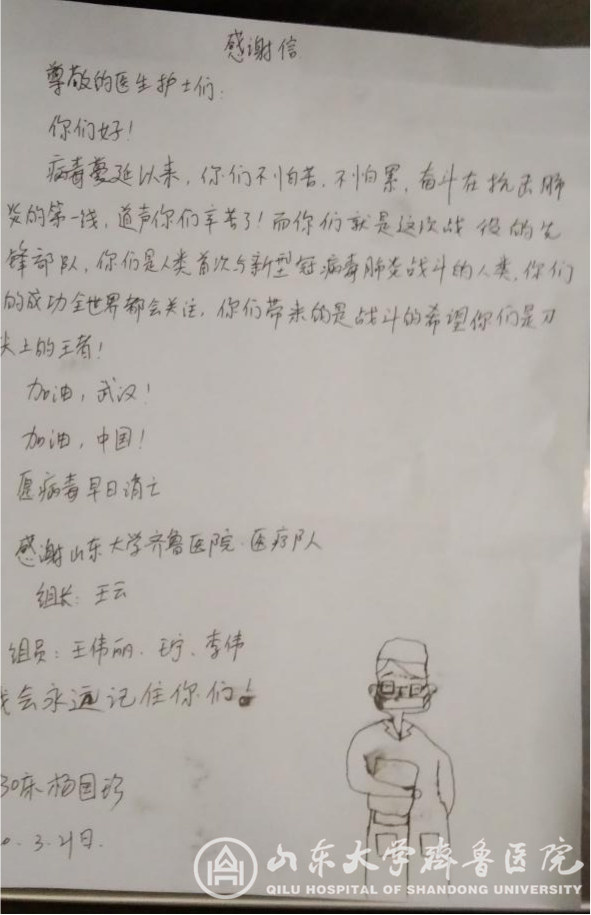 感谢信
尊敬的医生护士们:
你们好!
病毒蔓延以来,你们不怕苦,不怕累,奋斗在抗击肺
炎的第一线,道声你们辛苦了!而你们就是这次战役的先
锋部队,你们是人类首次与新型冠病毒肺炎战斗的人类,你们
的成功全世界都会关注,你们带来的是战斗的希望你们是刀
尖上的王者!
加油,武汉!
加油,中国!
愿病毒早日消亡
感谢山东大学齐鲁医院.医疗队
组长:王云
组员:王伟丽、王宁、李伟
我会永远记住你们!
30床杨国珍
0.3.21日.
山东大学齊鲁医院
QILU HOSPITAL OF SHANDONG UNIVERSITY